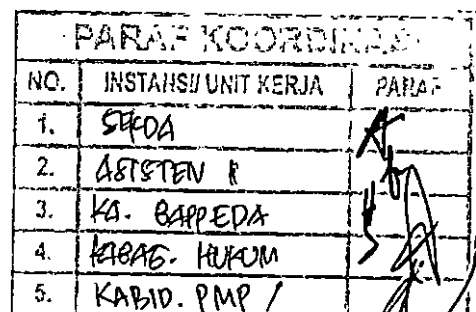 PARAF KOORDINASI
NO. INSTANSI/ UNIT KERJA PARAF
1. SEKDA
2. ASISTEN
3. KA. BAPPEDA
4. KABAG. HUKUM
5. KABID. PMP /